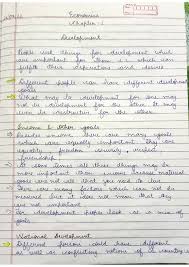 Economics
Chapter-1
Development
People seek things for development which
are important for them i.e. which can
fulfil their aspirations and desires
Different people can have different development
goals
What may be development for one may
not be development for the other. It may
even be destructive for the other
Income & other goals
Besides income, there are many goals
which are equally important. They are
equality, freedom, security, respect,
friendship
At some times all these things may be
more important than income because material
goods are not all that you need to live
There are many factors which can not be
measured but it does not mean that they
are not important
For development people look at a mix of
goals
National development
Different persons could have different
as well as conflicting notions of a country's